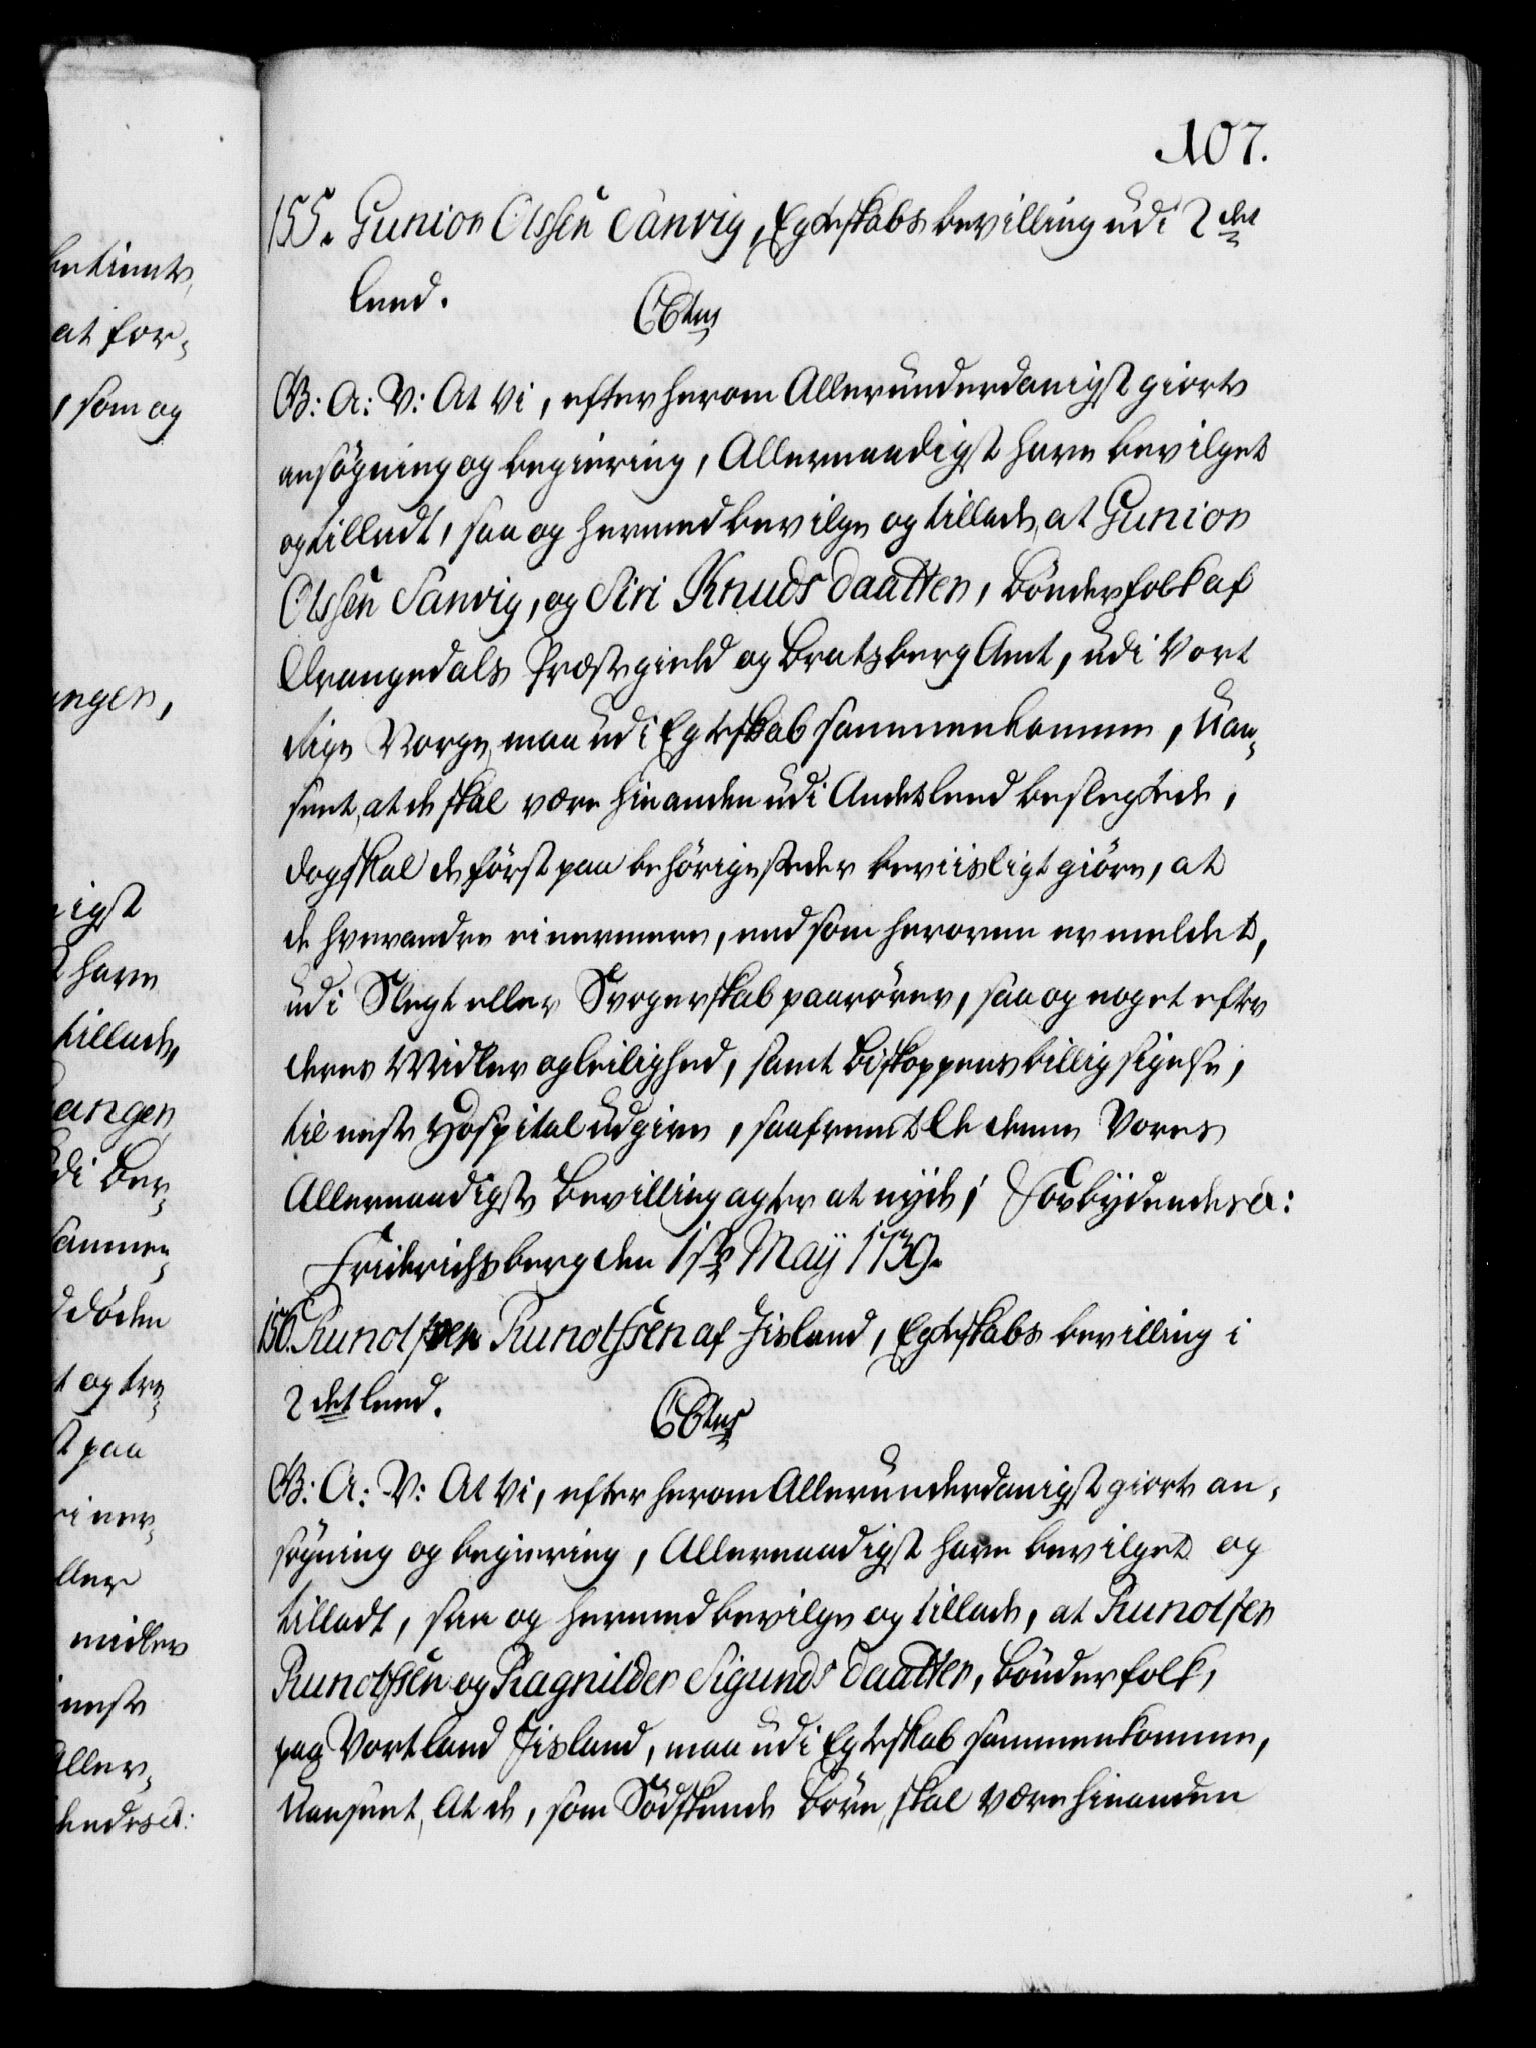 107.
155. Gunior Olssen Sanvig, Egteskabs bevilling udi 2det
Leed.
C6tus
G: A: V: At Vi, efter herom Allerunderdanigst giorte
ansøgning og begiering, Allernaadigst have bevilget
og tilladt, saa og hermed bevilge og tillade, at Gunior
Olssen Sanvig, og Siri Knuds daatter, Bønderfolk af
Drangedals Præstegield og Bratsberg Amt, udi Vort
Rige Norge, maa udi Egteskab sammenkomme, Uan-
seet, at de skal være hinanden udi Andet Leed beslegtede,
dog skal de først paa behørige steder beviisligt giøre, at
de hverandre ei nermere, end som heroven er meldet,
udi Slegt eller Svogerskab paarører, saa og noget efter
deres Midler og Leilighed, samt Biskoppens billig sigelse,
til neste Hospital udgive, saafremt De denne Vores
Allernaadigste Bevilling agter at nyde; Forbydendes &:
Friderichsberg den 1ste Maÿ 1739.
156. Runolfven Runolfsen af Iisland, Egteskabs bevilling i
2det Leed.
C6tus
G: A: V: At Vi, efter herom Allerunderdanigst giorte an-
søgning og begiering, Allernaadigst have bevilget og
tilladt, saa og hermed bevilge og tillade, at Runolfer
Runolfsen og Ragnilder Sigunds daatter, Bønderfolk,
paa Vort Land Iisland, maa udi Egteskab sammenkomme,
Uanseet, At de, som Sødskende Børn, skal være hinanden